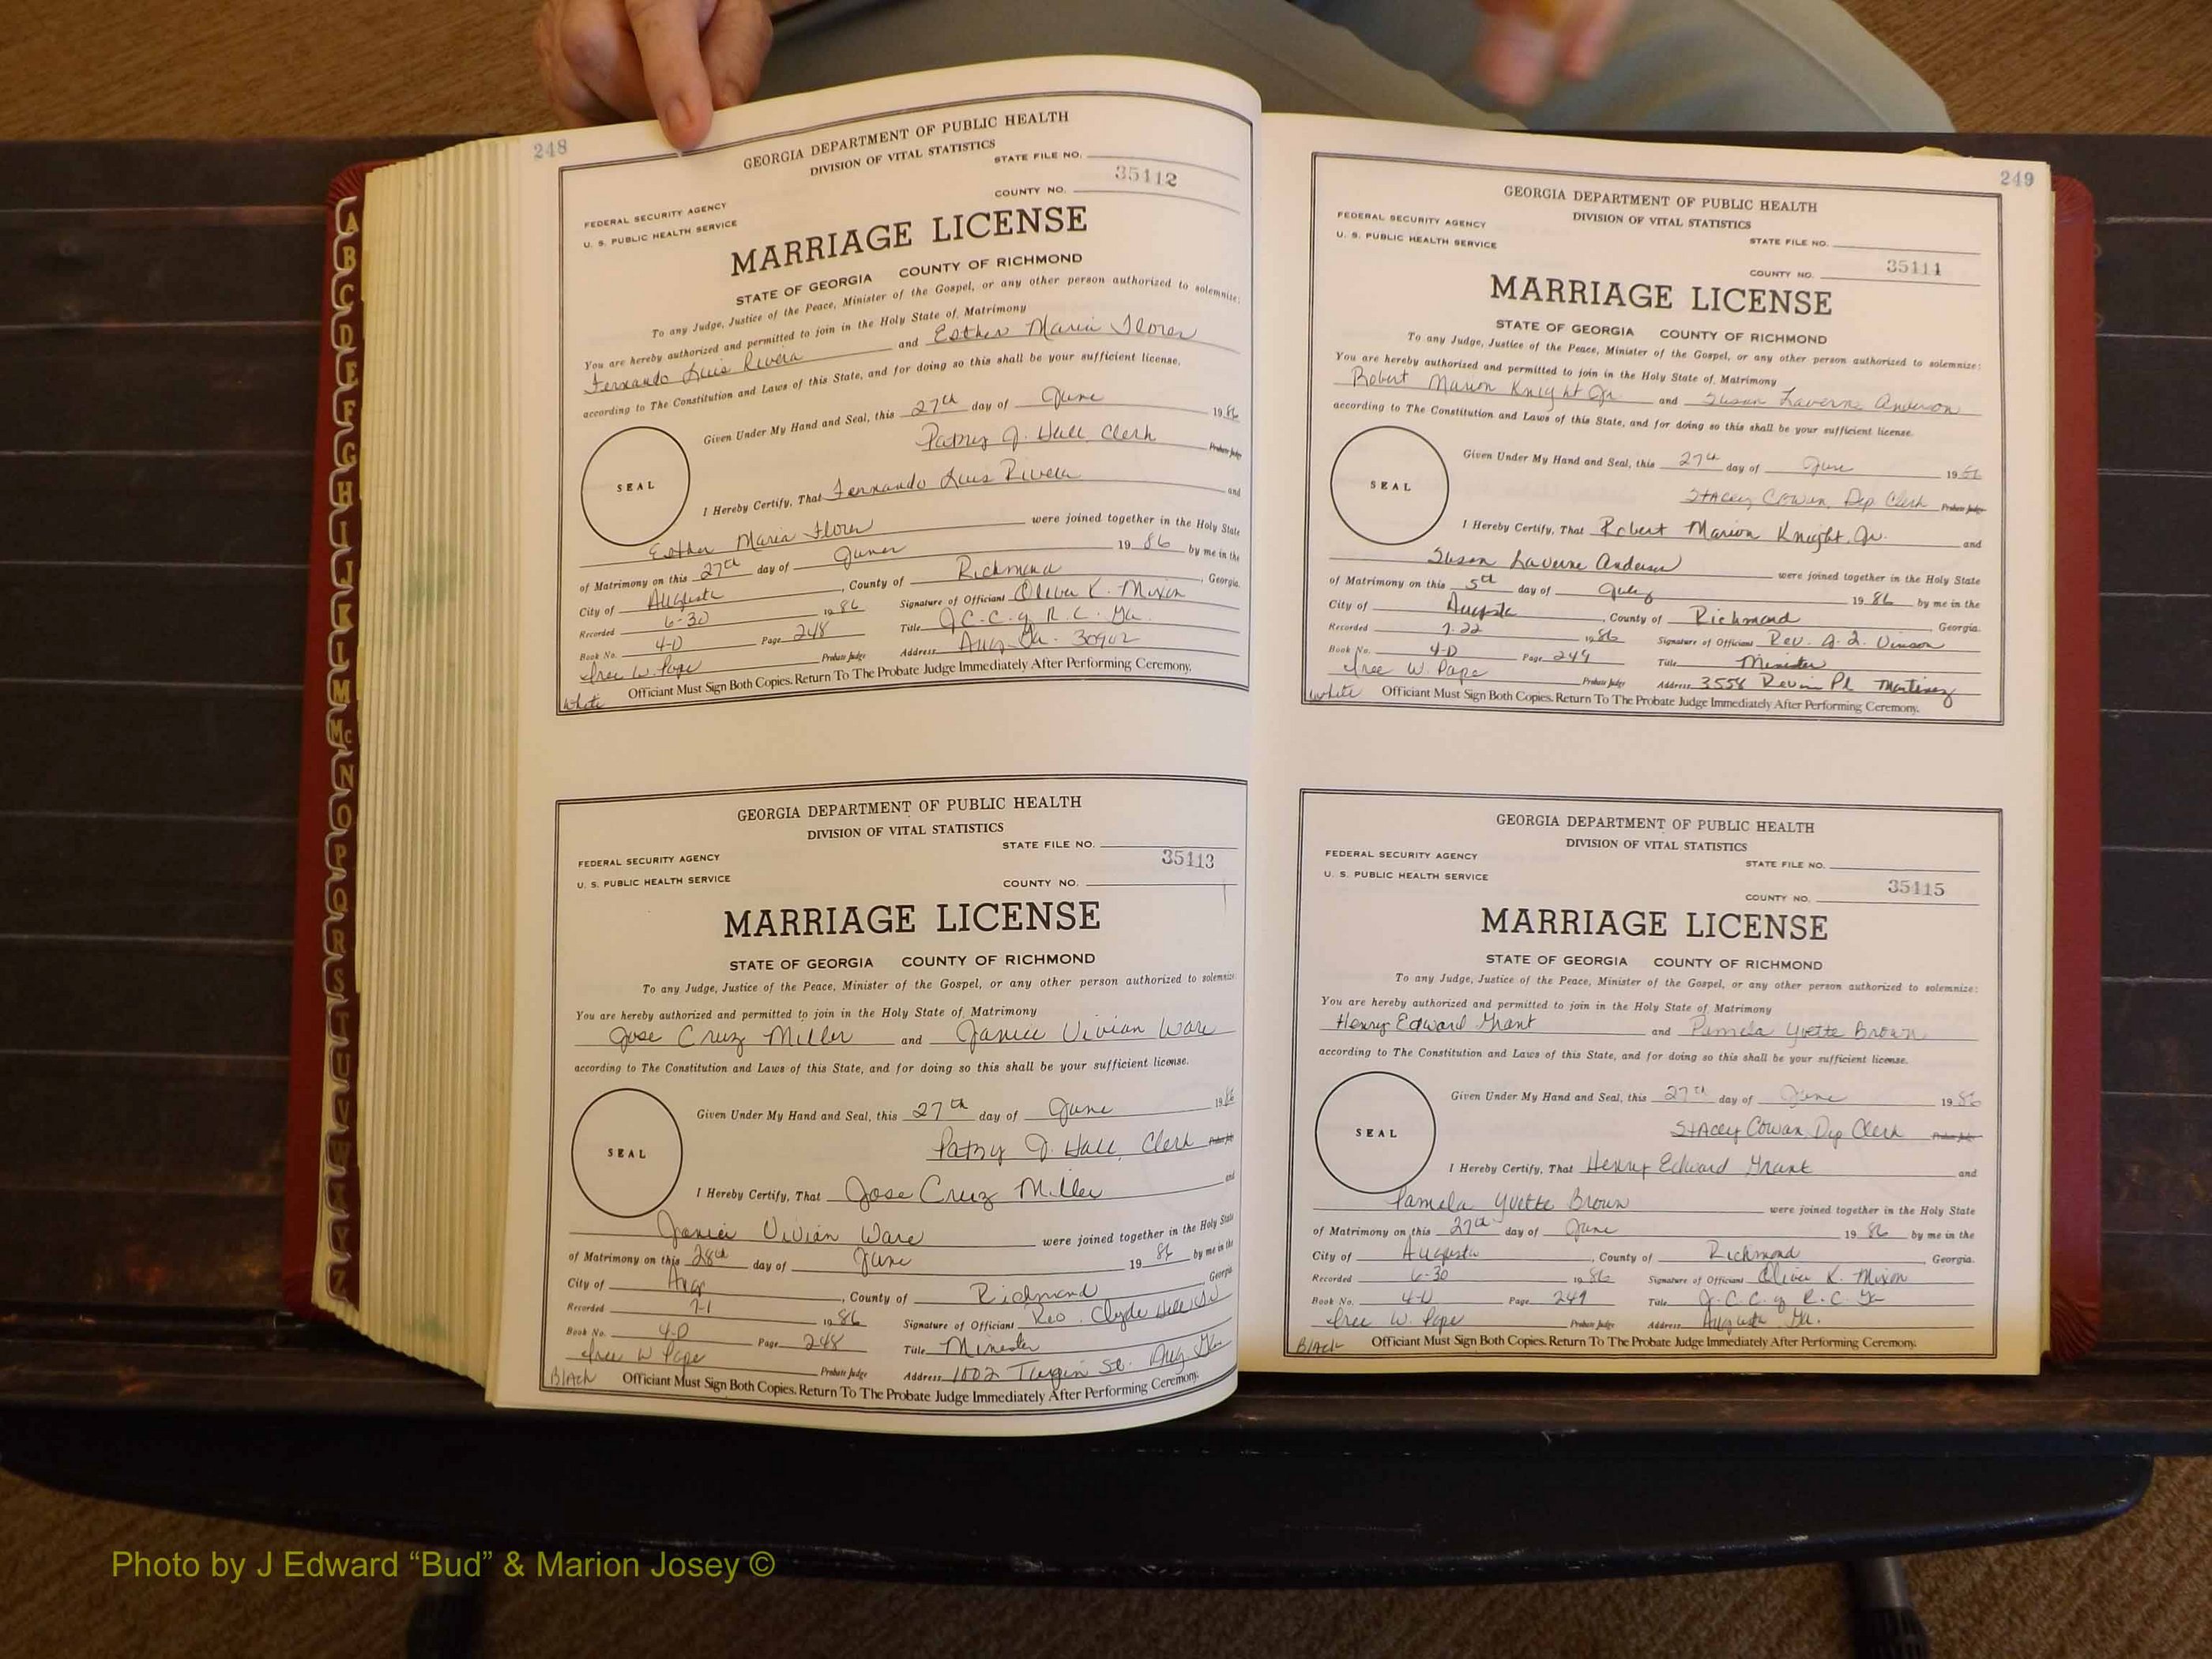 248
GEORGIA DEPARTMENT OF PUBLIC HEALTH
DIVISION OF VITAL STATISTICS
STATE FILE NO.
35112
COUNTY NO.
FEDERAL SECURITY AGENCY
U. S. PUBLIC HEALTH SERVICE
MARRIAGE LICENSE
STATE OF GEORGIA COUNTY OF RICHMOND
To any Judge, Justice of the Peace, Minister of the Gospel, or any other person authorized to solemnize:
You are hereby authorized and permitted to join in the Holy State of Matrimony
Fernando Luis Rivera and Esther Maria Flores
according to The Constitution and Laws of this State, and for doing so this shall be your sufficient license.
Given Under My Hand and Seal, this 27th day of June 1986
Patsy J. Hall Clerk Probate Judge
SEAL
I Hereby Certify, That Fernando Luis Rivera and
Esther Maria Flores were joined together in the Holy State
of Matrimony on this 27th day of June 19 86 by me in the
City of Augusta, County of Richmond, Georgia.
Recorded 6-30 1986 Signature of Officiant Oliver K. Mixon
Book No. 4-D Page 248 Title J.C.C. of R.C. Ga.
W. Pope Probate Judge Address Aug. Ga. 30902
White Officiant Must Sign Both Copies. Return To The Probate Judge Immediately After Performing Ceremony.
GEORGIA DEPARTMENT OF PUBLIC HEALTH
DIVISION OF VITAL STATISTICS
STATE FILE NO.
35113
FEDERAL SECURITY AGENCY
U. S. PUBLIC HEALTH SERVICE
COUNTY NO.
MARRIAGE LICENSE
STATE OF GEORGIA COUNTY OF RICHMOND
To any Judge, Justice of the Peace, Minister of the Gospel, or any other person authorized to solemnize:
You are hereby authorized and permitted to join in the Holy State of Matrimony
Jose Cruz Miller and Janice Vivian Ware
according to The Constitution and Laws of this State, and for doing so this shall be your sufficient license.
Given Under My Hand and Seal, this 27th day of June 1986
Patsy J. Hall, Clerk Probate Judge
SEAL
I Hereby Certify, That Jose Cruz Miller and
Janice Vivian Ware were joined together in the Holy State
of Matrimony on this 28th day of June 19 86 by me in the
City of Aug, County of Richmond Georgia
Recorded 7-1 1986 Signature of Officiant Rev. Clyde Hill Sr
Book No. 4-D Page 248 Title Minister
W Pope Probate Judge Address 1002 St. Aug Ga
Black Officiant Must Sign Both Copies. Return To The Probate Judge Immediately After Performing Ceremony.
249
GEORGIA DEPARTMENT OF PUBLIC HEALTH
DIVISION OF VITAL STATISTICS
FEDERAL SECURITY AGENCY
U. S. PUBLIC HEALTH SERVICE
STATE FILE NO.
35111
COUNTY NO.
MARRIAGE LICENSE
STATE OF GEORGIA COUNTY OF RICHMOND
To any Judge, Justice of the Peace, Minister of the Gospel, or any other person authorized to solemnize:
You are hereby authorized and permitted to join in the Holy State of Matrimony
Robert Marion Knight Jr. and Susan Laverne Anderson
according to The Constitution and Laws of this State, and for doing so this shall be your sufficient license.
Given Under My Hand and Seal, this 27th day of June 1986
Stacey Cowan, Dep Clerk Probate Judge
SEAL
I Hereby Certify, That Robert Marion Knight, Jr. and
Susan Laverne Anderson were joined together in the Holy State
of Matrimony on this 5th day of July 19 86 by me in the
City of Augusta, County of Richmond, Georgia.
Recorded 7-22 1986 Signature of Officiant Rev. J. L. Vinson
Book No. 4-D Page 249 Title Minister
W. Pope Probate Judge Address 3558 Pl Martinez
White Officiant Must Sign Both Copies. Return To The Probate Judge Immediately After Performing Ceremony.
GEORGIA DEPARTMENT OF PUBLIC HEALTH
DIVISION OF VITAL STATISTICS
FEDERAL SECURITY AGENCY
U. S. PUBLIC HEALTH SERVICE
STATE FILE NO.
35115
COUNTY NO.
MARRIAGE LICENSE
STATE OF GEORGIA COUNTY OF RICHMOND
To any Judge, Justice of the Peace, Minister of the Gospel, or any other person authorized to solemnize:
You are hereby authorized and permitted to join in the Holy State of Matrimony
Henry Edward Grant and Pamela Yvette Brown
according to The Constitution and Laws of this State, and for doing so this shall be your sufficient license.
Given Under My Hand and Seal, this 27th day of June 1986
Stacey Cowan, Dep Clerk Probate Judge
SEAL
I Hereby Certify, That Henry Edward Grant and
Pamela Yvette Brown were joined together in the Holy State
of Matrimony on this 27th day of June 19 86 by me in the
City of Augusta, County of Richmond, Georgia.
Recorded 6-30 1986 Signature of Officiant Oliver K. Mixon
Book No. 4-D Page 249 Title J.C.C. of R.C. Ga
W. Pope Probate Judge Address Augusta Ga.
Black Officiant Must Sign Both Copies. Return To The Probate Judge Immediately After Performing Ceremony.
A
B
C
D
E
F
G
H
I
J
K
L
M
Mc
N
O
P
Q
R
S
T
U
V
W
X
Y
Z
Photo by J Edward “Bud” & Marion Josey ©